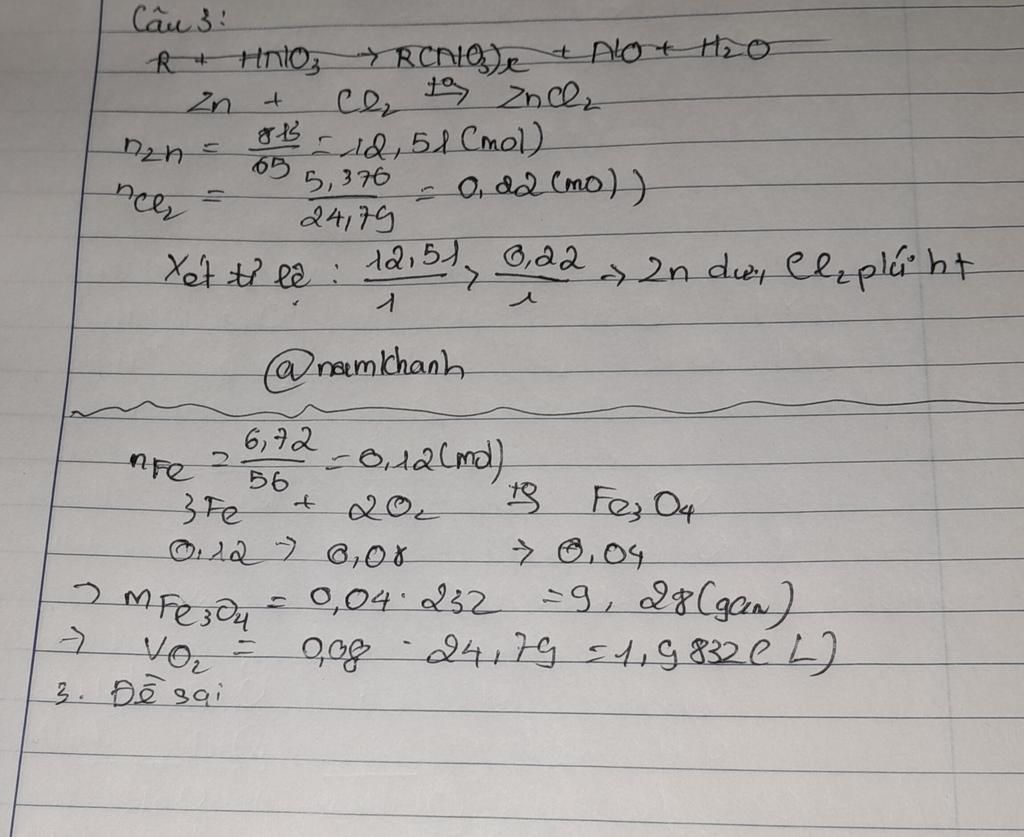 Câu 3:
R + HNO3 → R(NO3)x + NO + H2O
Zn + Cl2 t° → ZnCl2
nZn = 813/65 = 12,51 (mol)
nCl2 = 5,376/24,79 = 0,22 (mol)
Xét tỉ lệ : 12,51/1 > 0,22/1 → Zn dư, Cl2 pứ ht
@namkhanh
nFe = 6,72/56 = 0,12 (mol)
3Fe + 2O2 t° → Fe3O4
0,12 → 0,08 → 0,04
→ mFe3O4 = 0,04 . 232 = 9,28 (gam)
→ VO2 = 0,08 . 24,79 = 1,9832 (L)
3. Đề sai